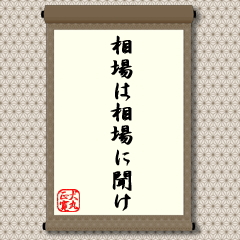 相場は相場に聞け